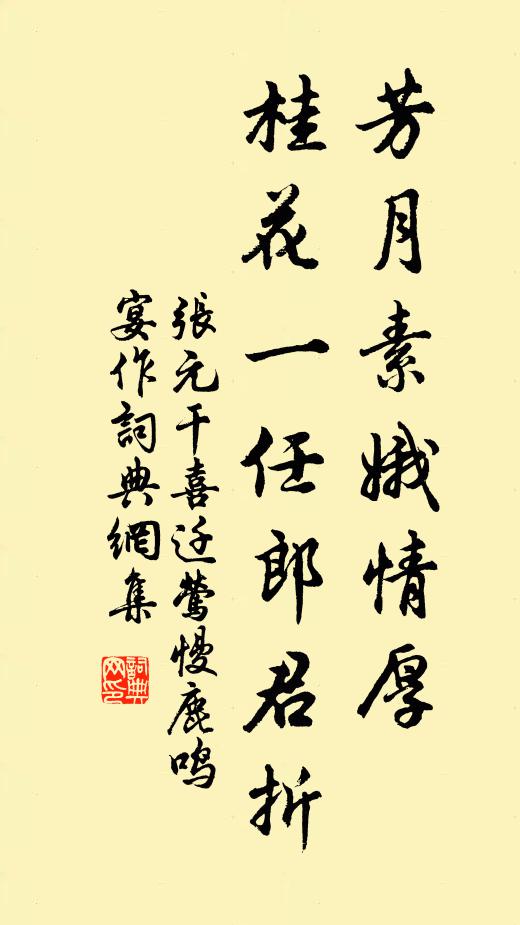 芳月素娥情厚
桂花一任郎君折
張元干喜迁鶯慢鹿鸣
宴作詞典網集
詞典网印